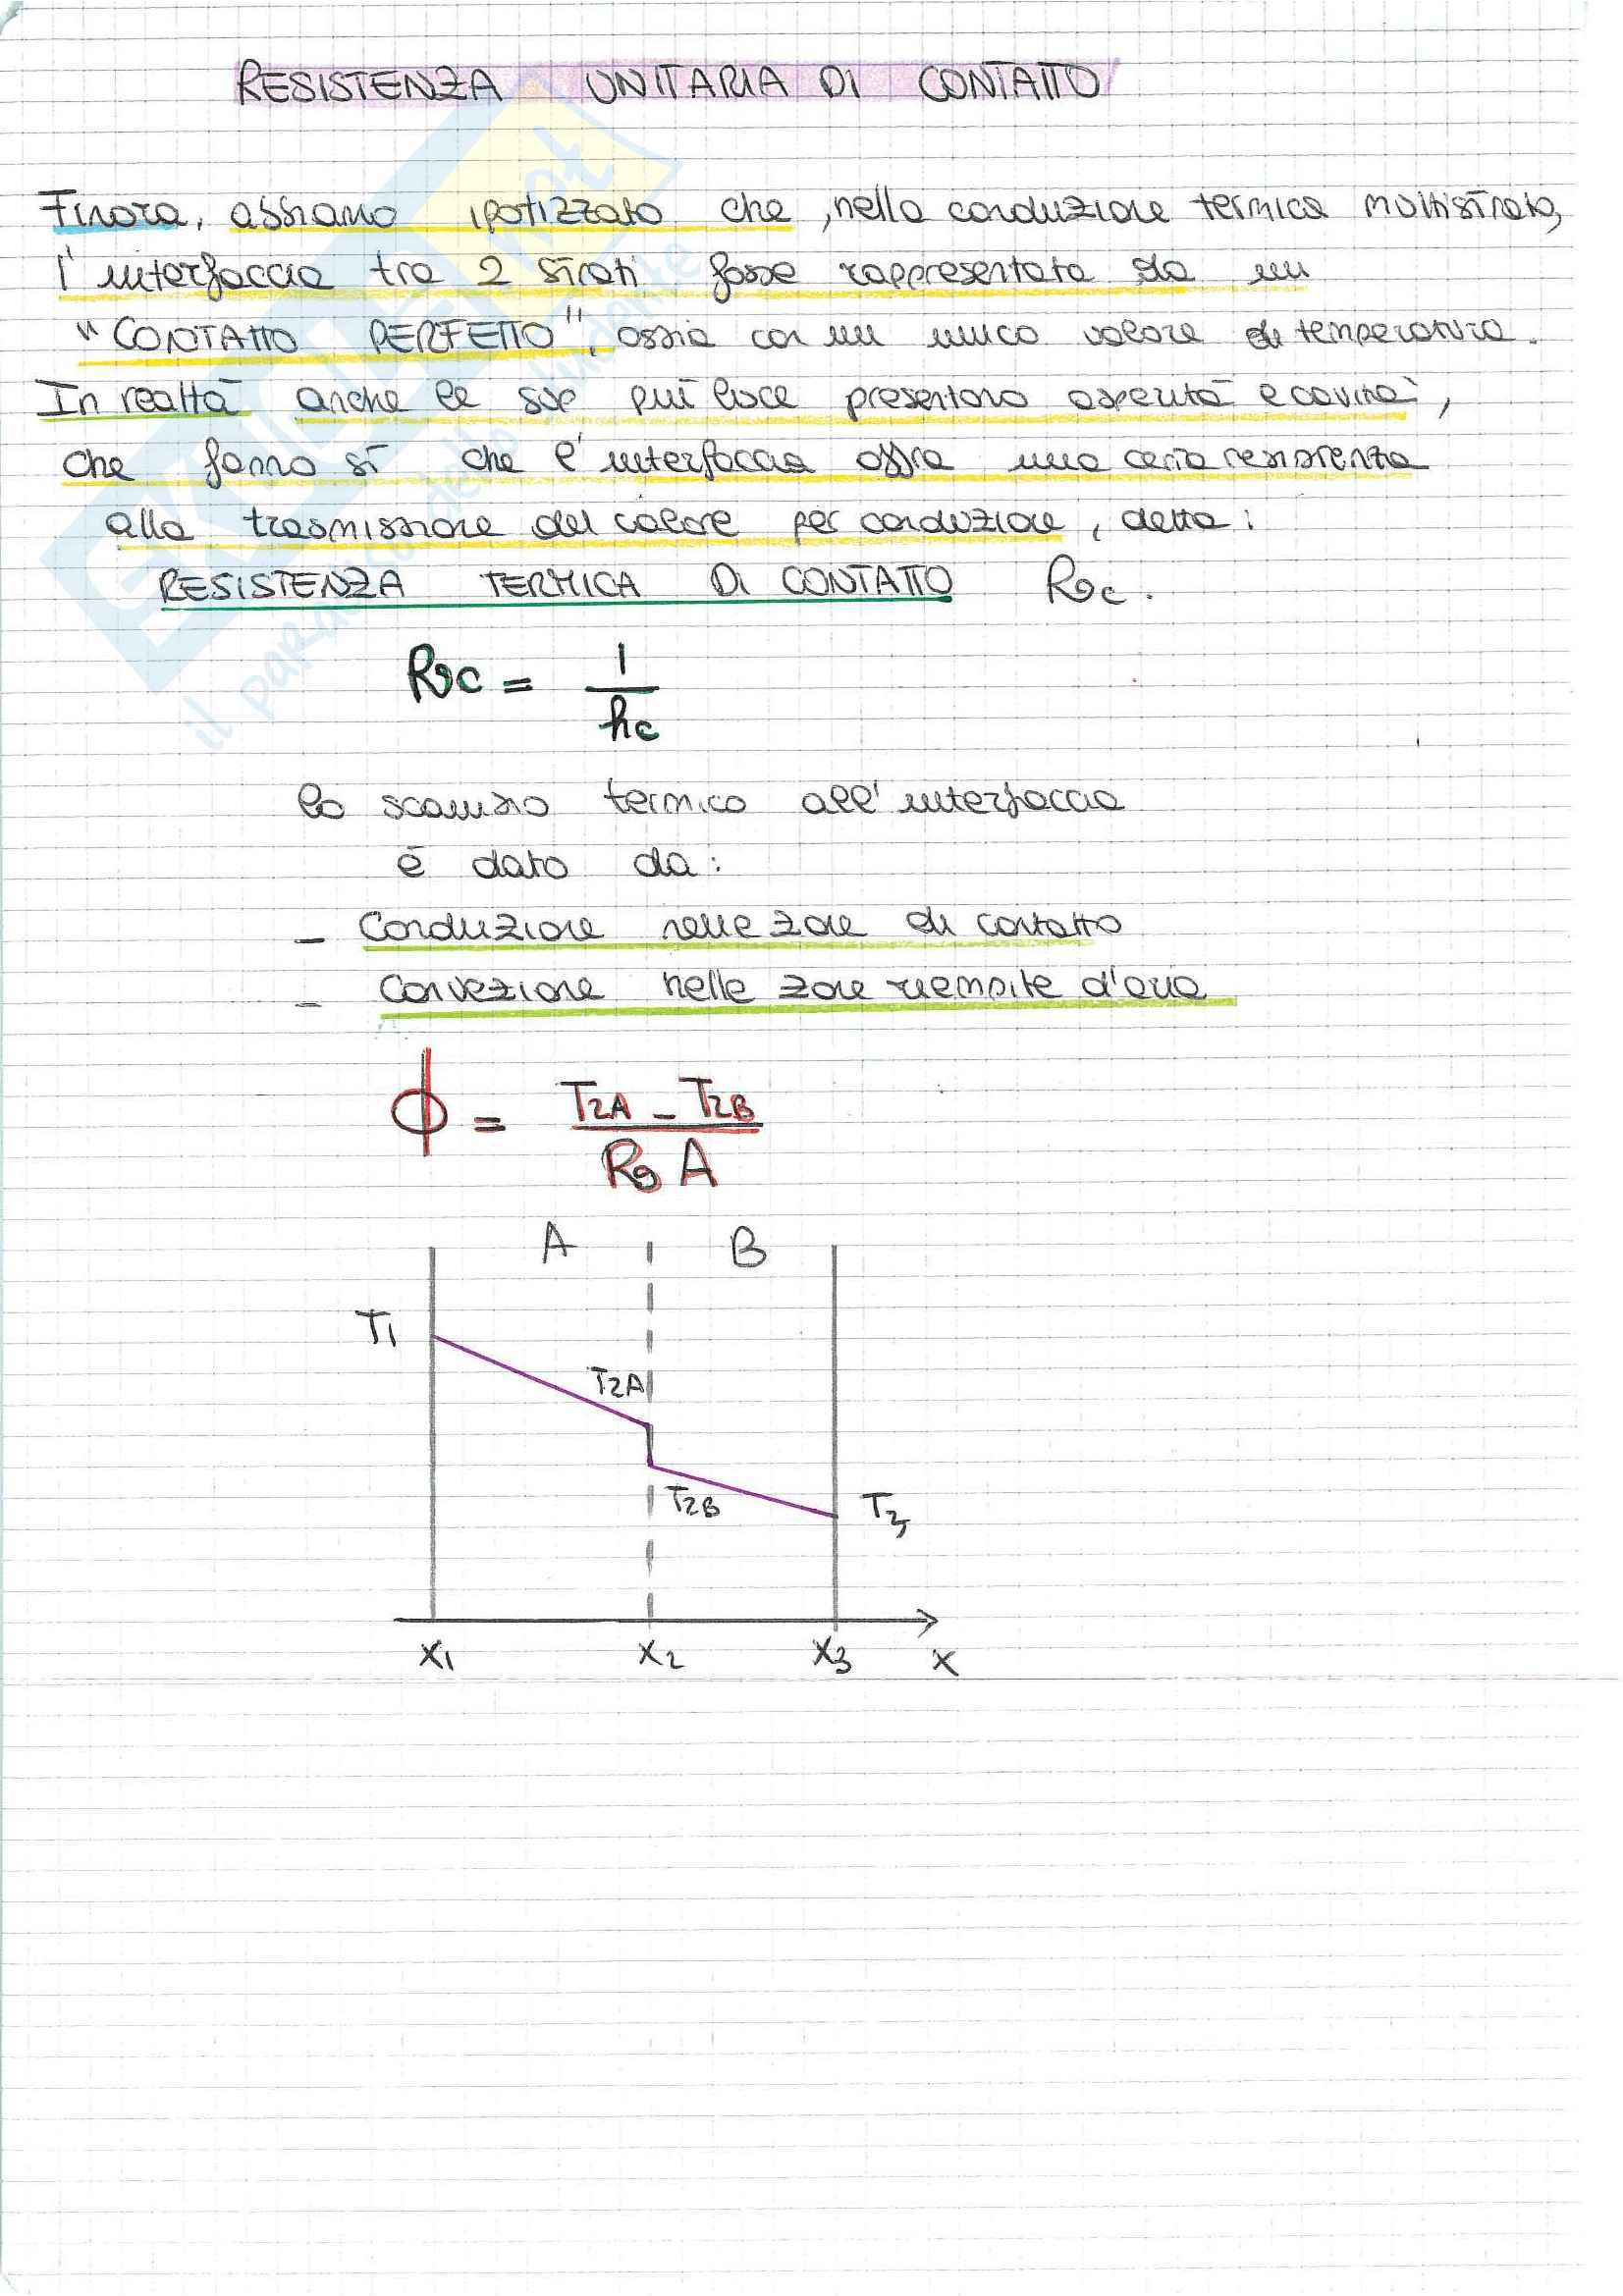 RESISTENZA UNITARIA DI CONTATTO
Finora, abbiamo ipotizzato che, nella conduzione termica multistrato,
l'interfaccia tra 2 strati fosse rappresentata da un
"CONTATTO PERFETTO", ossia con un unico valore di temperatura.
In realtà anche le sup più lisce presentano asperità e cavità,
che fanno sì che l'interfaccia offra una certa resistenza
alla trasmissione del calore per conduzione, detta:
RESISTENZA TERMICA DI CONTATTO Rϑc.
Rϑc = 1
hc
lo scambio termico all'interfaccia
è dato da:
- Conduzione nelle zone di contatto
- Convezione nelle zone riempite d'aria
ϕ = T2A - T2B
Rϑ A
A B
T1
T2A
T2B T3
x1 x2 x3 x